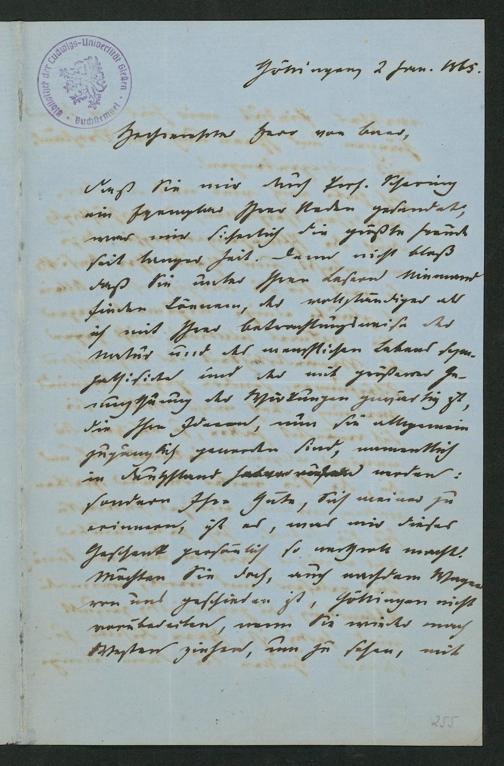 Bibliothek der Ludwigs-Universität Gießen
Buchstempel
Göttingen 2 Jan. 1865.
Hochverehrter Herr von Baer,
Daß Sie mir durch Prof. Schering
ein Exemplar Ihrer Reden gesandt,
war mir sicherlich die größte Freude
seit langer Zeit. Denn nicht bloß
daß Sie unter Ihren Lesern Niemand
finden können, der vollständiger als
ich mit Ihrer Betrachtungsweise der
Natur und des menschlichen Lebens sym-
pathisirte und der mit größerer Ge-
nugthuung der Wirkungen gewärtig ist,
die Ihre Ideen, nun sie allgemein
zugänglich geworden sind, namentlich
in Deutschland werden:
sondern Ihre Güte, Sich meiner zu
erinnern, ist es, was mir dieses
Geschenk persönlich so werthvoll macht.
Möchten Sie doch, auch nachdem Wagner
von uns geschieden ist, Göttingen nicht
vorübereilen, wenn Sie wieder nach
Westen ziehen, um zu sehen, mit
255